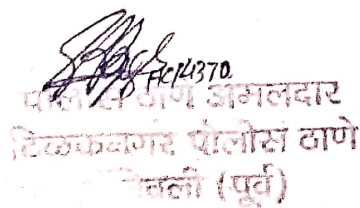 HC/4370
पोलीस ठाणे अमलदार
टिळकनगर पोलीस ठाणे
(पूर्व)